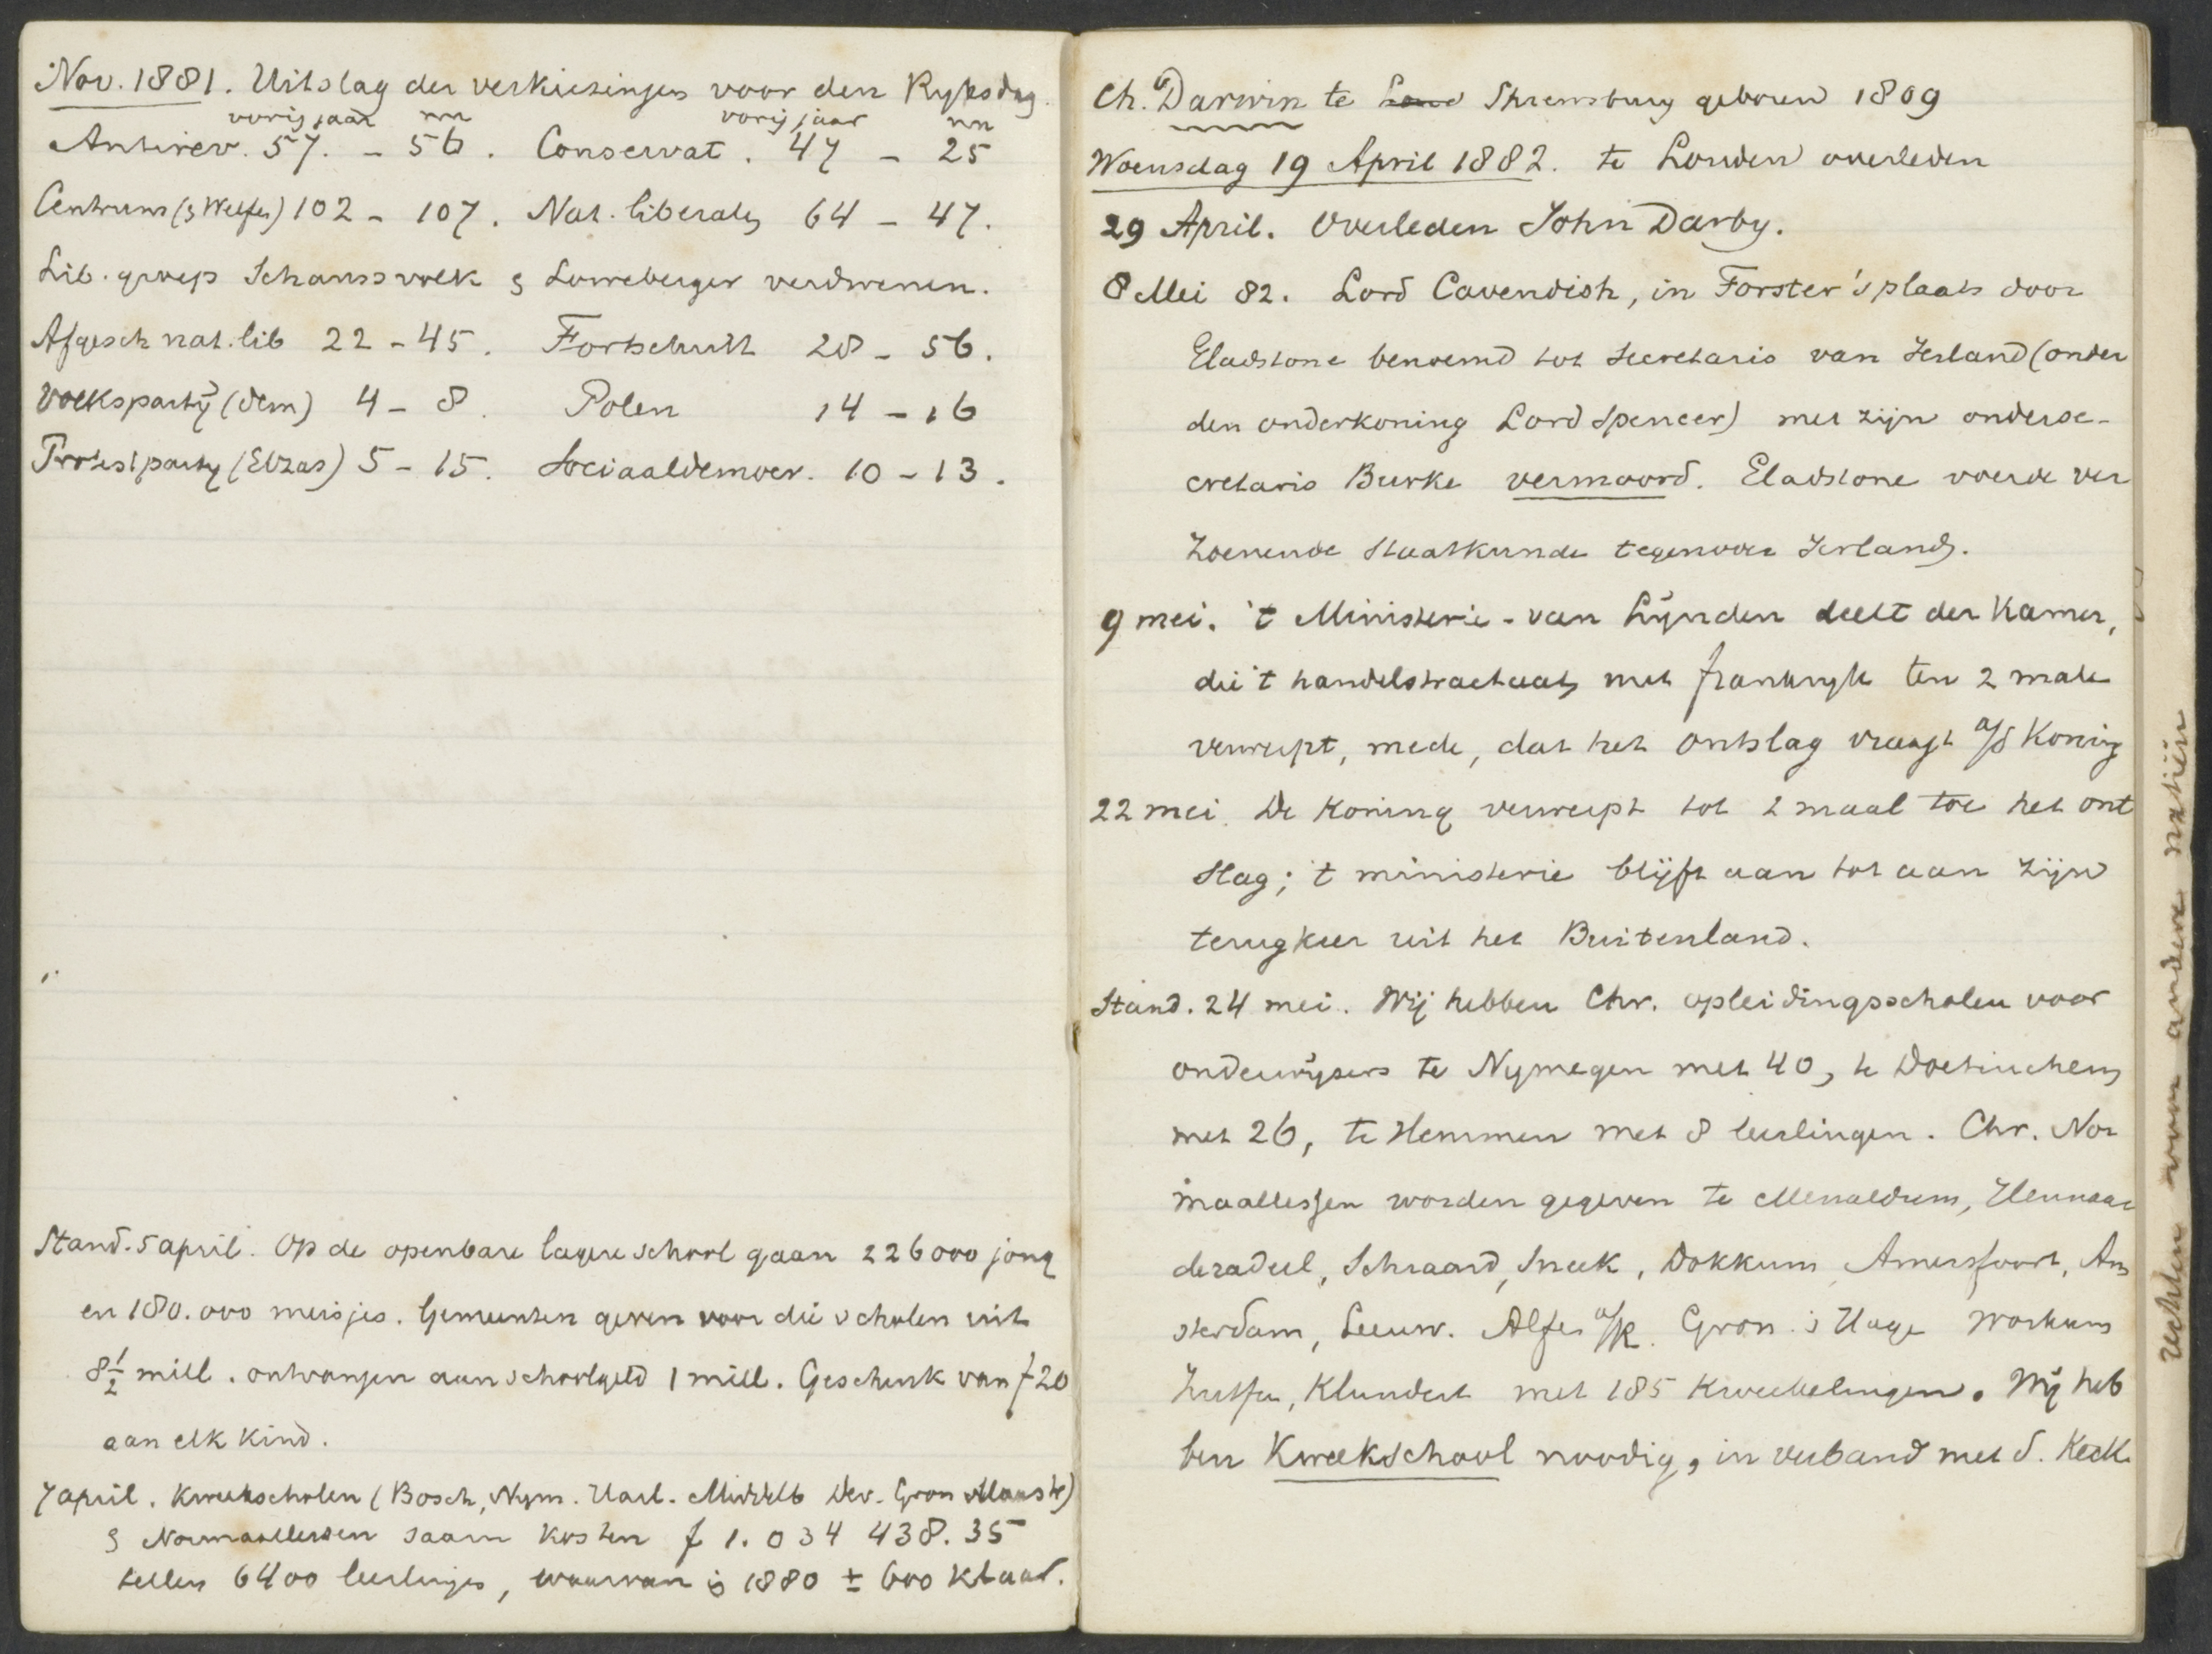 Nov. 1881. Uitslag der verkiezingen voor den Ryksdag.
vorig jaar nu vorig jaar nu
Antirev. 57. - 56. Conservat. 47 - 25
Centrum (& Welfen) 102 - 107. Nat. liberalen 64 - 47.
Lib. groep Schauss volk & Loweberger verdwenen.
Afgesch nat. lib 22 - 45. Fortschritt 28 - 56.
Volksparty (dem) 4 - 8. Polen 14 - 16
Protestparty (Elzas) 5 - 15. Sociaaldemocr. 10 - 13.
Stand. 5 april. Op de openbare lagere school gaan 226000 jong
en 180.000 meisjes. Gemeenten geven voor die scholen uit
8½ mill. ontvangen aan schoolgeld 1 mill. Geschenk van f 20
aan elk kind.
7 april. Kweekscholen (Bosch, Nym. Haarl. Middelb Dev. Gron Maastr)
& Normaallessen saam kosten f 1.034 438.35
tellen 6400 leerlingen, waarvan in 1880 ± 600 klaar.
Ch. Darwin te Lond Shrewsbury geboren 1809
Woensdag 19 April 1882. te Londen overleden
29 April. Overleden John Darby.
8 Mei 82. Lord Cavendish, in Forster's plaats door
Gladstone benoemd tot Secretaris van Ierland (onder
den onderkoning Lord Spencer) met zijn onderse-
cretaris Burke vermoord. Gladstone voerde ver
zoenende staatkunde tegenover Ierland.
9 mei. 't Ministerie - van Lynden deelt der Kamer,
die 't handelstractaat met frankryk ten 2 male
verwerpt, mede, dat het ontslag vraagt a/d Koning
22 mei. De Koning verwerpt tot 2 maal toe het ont
slag; 't ministerie blijft aan tot aan zijn
terugkeer uit het Buitenland.
Stand. 24 mei. Wij hebben Chr. opleidingsscholen voor
onderwijzers te Nymegen met 40, te Doetinchem
met 26, te Hemmen met 8 leerlingen. Chr. Nor
maallessen worden gegeven te Menaldum, Hennaar
deradeel, Schraard, Sneek, Dokkum, Amersfoort, Am
sterdam, Leeuw. Alfen a/R. Gron. 's Hage Workum
Zutfen, Klundert met 185 Kweekelingen. Wij heb
ben Kweekschool noodig, in verband met d. Kerk.
Rechten voor andere natiën